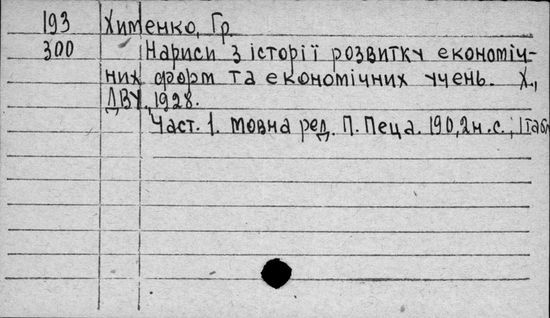 193 Хименко, Гр.
300 Нариси з історії розвитку економіч-
них форм та економічних учень. Х.,
ДВУ, 1928.
Част. 1. Мовна ред. П. Пеца. 190, 2 н. с.; 1 табл